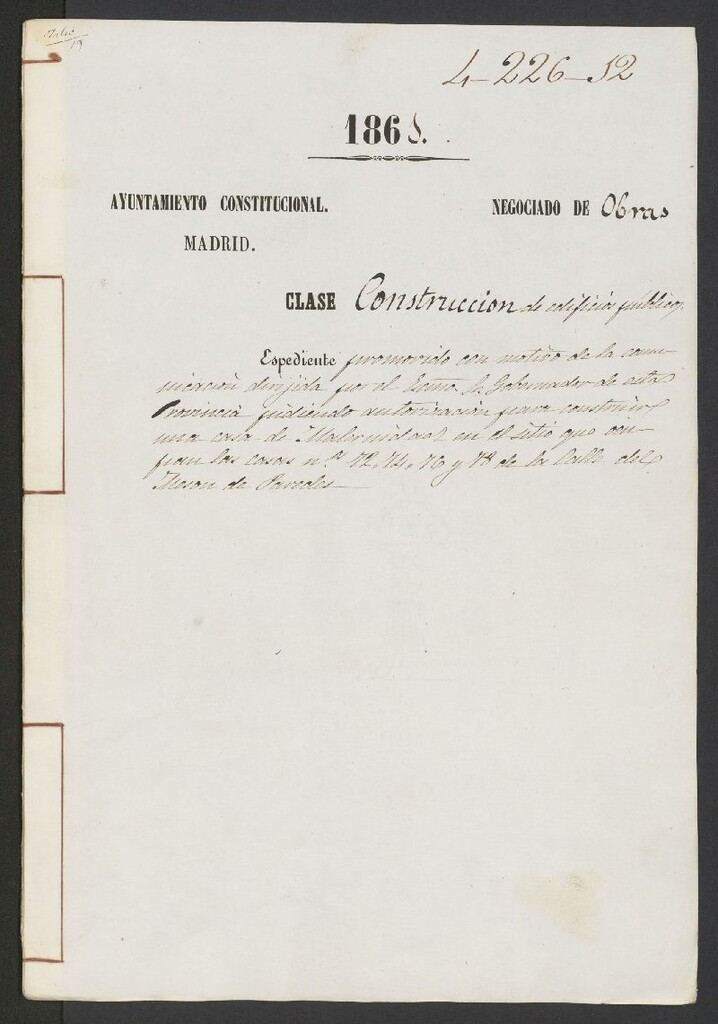 Julio
19
4-226-52
1865.
AYUNTAMIENTO CONSTITUCIONAL.
NEGOCIADO DE Obras
MADRID.
CLASE Construccion de edificios públicos,
Espediente promovido con motivo de la comu-
nicacion dirijida por el Exmo. Sr. Gobernador de esta
Provincia pidiendo autorizacion para construir
una casa de Maternidad en el sitio que ocu-
pan las casas n.os 72, 74, 76 y 78 de la Calle del
Meson de Paredes